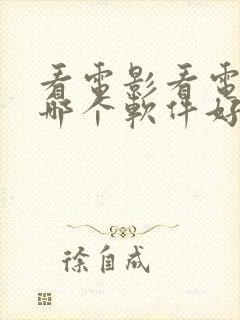 看電影看電
哪个軟件好
徐自成